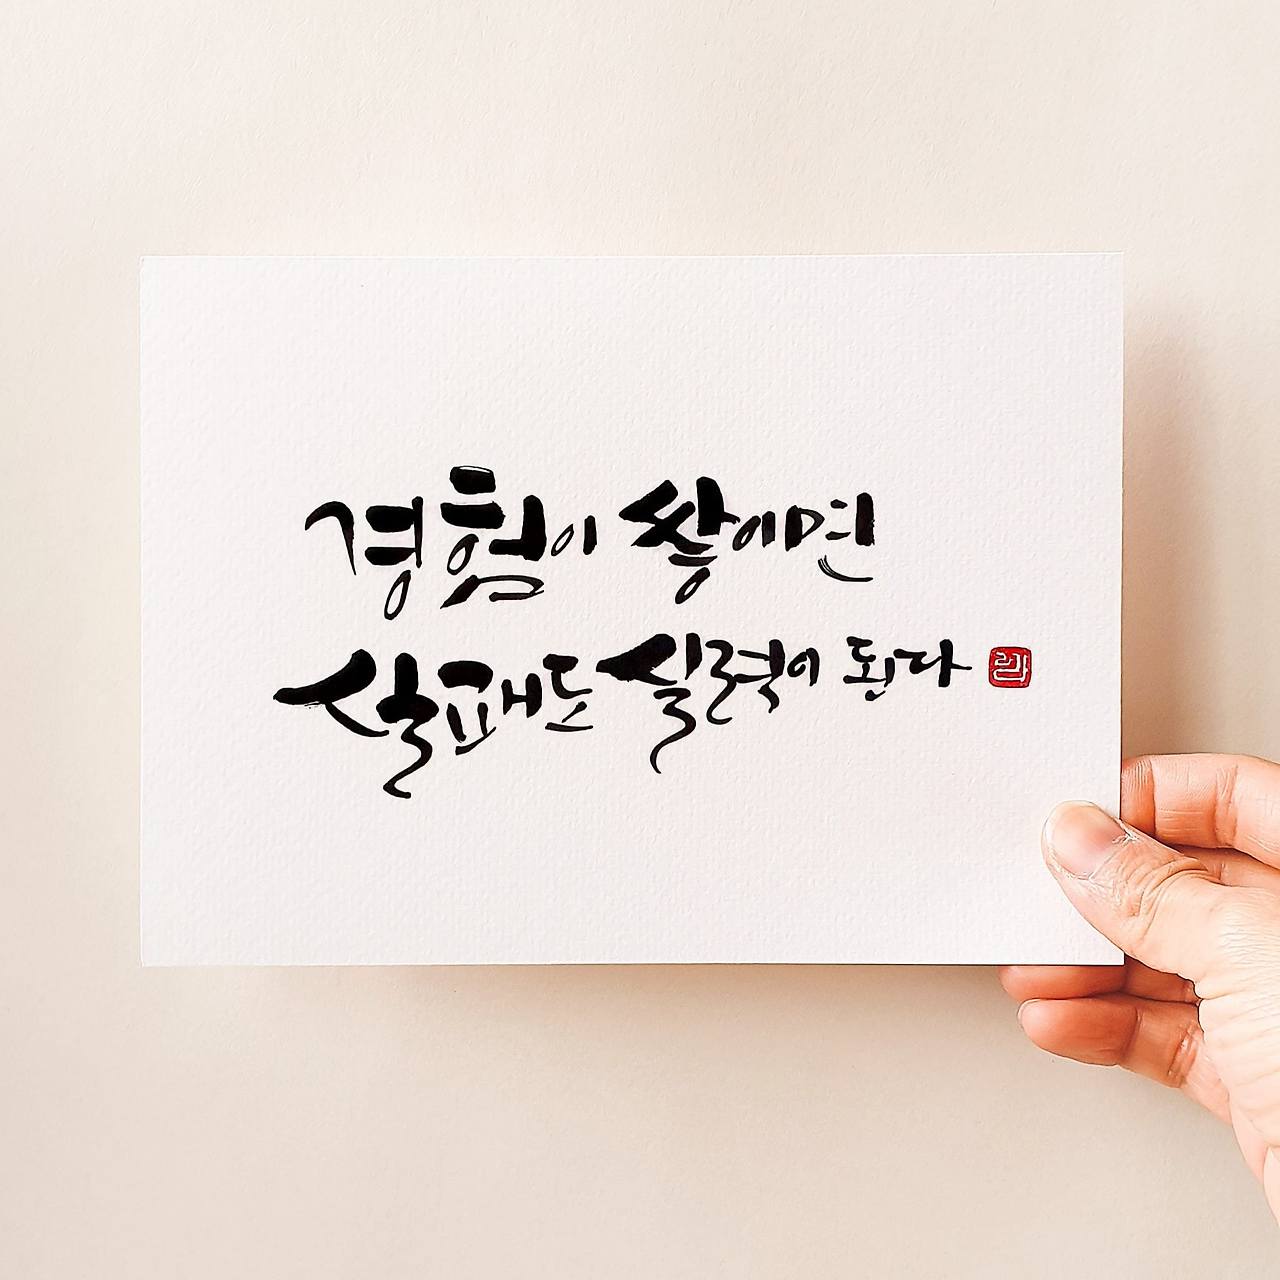 경험이 쌓이면
실패도 실력이 된다